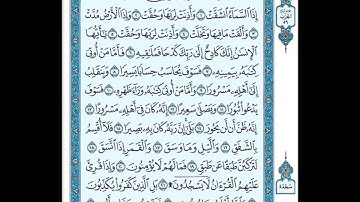 إِذَا ٱلسَّمَآءُ ٱنشَقَّتْ ١ وَأَذِنَتْ لِرَبِّهَا وَحُقَّتْ ٢ وَإِذَا ٱلْأَرْضُ مُدَّتْ
٣ وَأَلْقَتْ مَا فِيهَا وَتَخَلَّتْ ٤ وَأَذِنَتْ لِرَبِّهَا وَحُقَّتْ ٥ يَٰٓأَيُّهَا
ٱلْإِنسَٰنُ إِنَّكَ كَادِحٌ إِلَىٰ رَبِّكَ كَدْحًا فَمُلَٰقِيهِ ٦ فَأَمَّا مَنْ أُوتِيَ
كِتَٰبَهُۥ بِيَمِينِهِۦ ٧ فَسَوْفَ يُحَاسَبُ حِسَابًا يَسِيرًا ٨ وَيَنقَلِبُ
إِلَىٰٓ أَهْلِهِۦ مَسْرُورًا ٩ وَأَمَّا مَنْ أُوتِيَ كِتَٰبَهُۥ وَرَآءَ ظَهْرِهِۦ ١٠ فَسَوْفَ
يَدْعُوا۟ ثُبُورًا ١١ وَيَصْلَىٰ سَعِيرًا ١٢ إِنَّهُۥ كَانَ فِىٓ أَهْلِهِۦ مَسْرُورًا ١٣
إِنَّهُۥ ظَنَّ أَن لَّن يَحُورَ ١٤ بَلَىٰٓ إِنَّ رَبَّهُۥ كَانَ بِهِۦ بَصِيرًا ١٥ فَلَآ أُقْسِمُ
بِٱلشَّفَقِ ١٦ وَٱلَّيْلِ وَمَا وَسَقَ ١٧ وَٱلْقَمَرِ إِذَا ٱتَّسَقَ ١٨
لَتَرْكَبُنَّ طَبَقًا عَن طَبَقٍ ١٩ فَمَا لَهُمْ لَا يُؤْمِنُونَ ٢٠ وَإِذَا قُرِئَ
عَلَيْهِمُ ٱلْقُرْءَانُ لَا يَسْجُدُونَ ۩ ٢١ بَلِ ٱلَّذِينَ كَفَرُوا۟ يُكَذِّبُونَ
سجدة